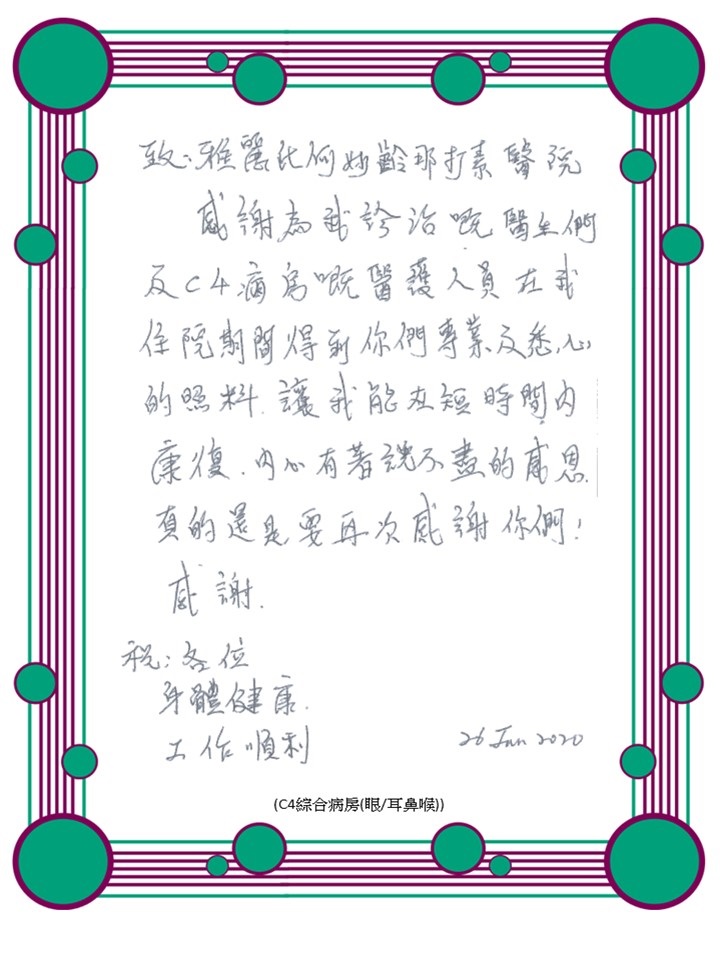 致：雅麗氏何妙齡那打素醫院
感謝為我診治嘅醫生們
及C4病房嘅醫護人員在我
住院期間得到你們專業及悉心
的照料.讓我能在短時間內
康復.內心有著說不盡的感恩.
真的還是要再次感謝你們!
感謝.
祝：各位
身體健康.
工作順利
26 Jan 2020
(C4綜合病房(眼/耳鼻喉))